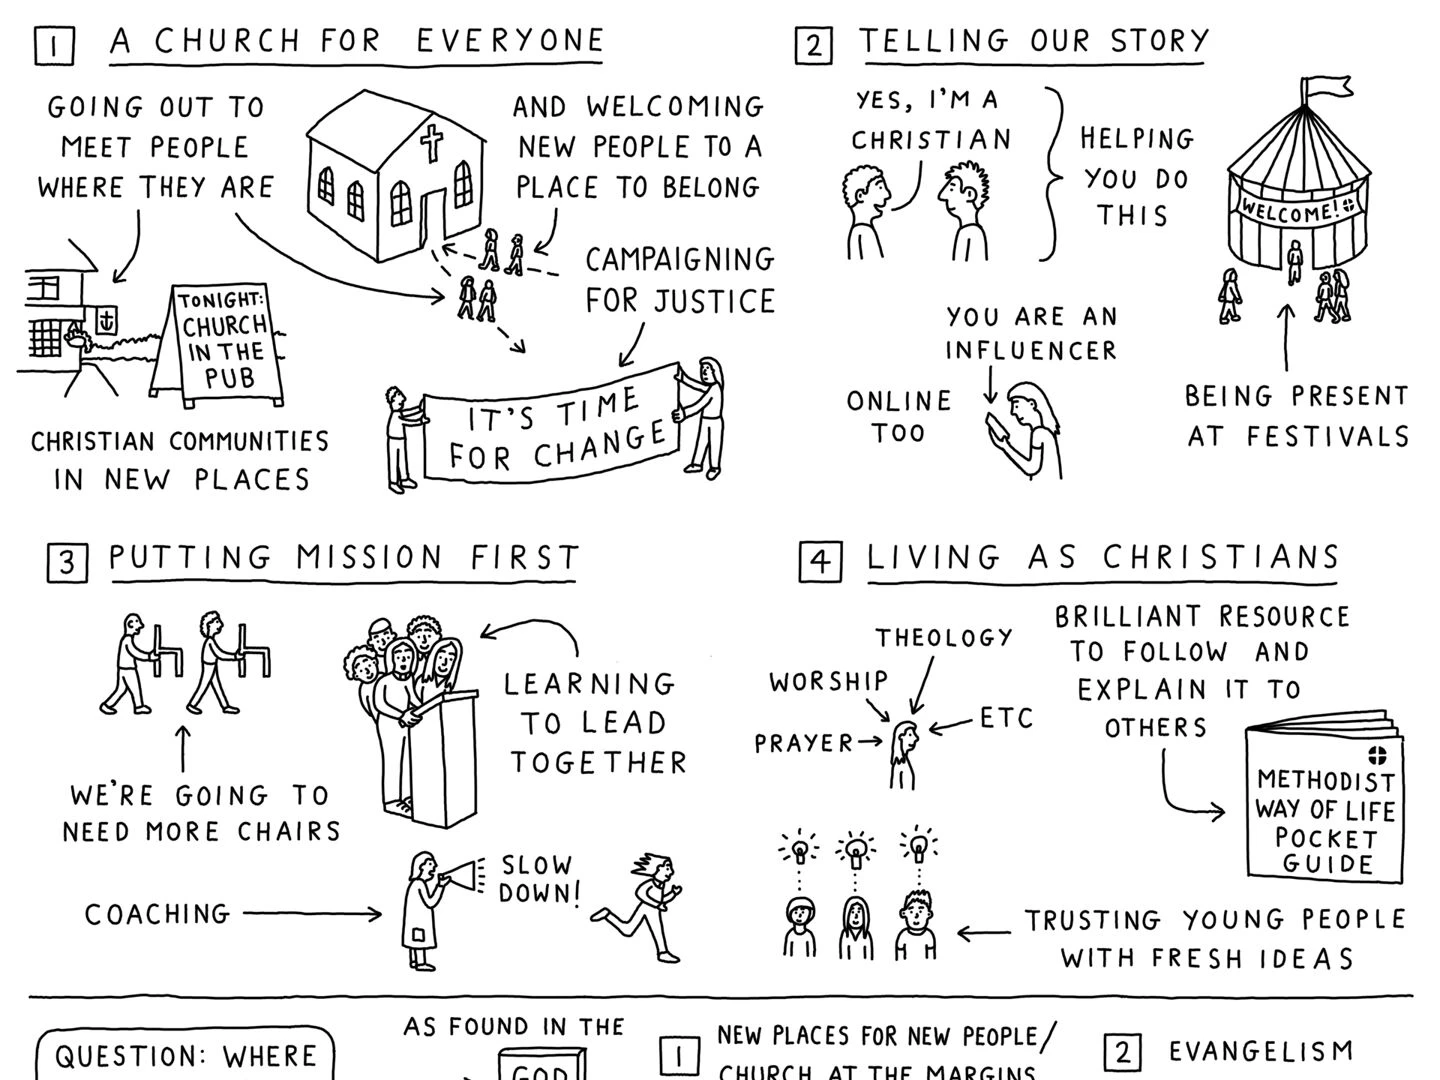 1 A CHURCH FOR EVERYONE
GOING OUT TO
MEET PEOPLE
WHERE THEY ARE
AND WELCOMING
NEW PEOPLE TO A
PLACE TO BELONG
CAMPAIGNING
FOR JUSTICE
TONIGHT:
CHURCH
IN THE
PUB
CHRISTIAN COMMUNITIES
IN NEW PLACES
IT'S TIME
FOR CHANGE
2 TELLING OUR STORY
YES, I'M A
CHRISTIAN
HELPING
YOU DO
THIS
WELCOME!
YOU ARE AN
INFLUENCER
ONLINE
TOO
BEING PRESENT
AT FESTIVALS
3 PUTTING MISSION FIRST
WE'RE GOING TO
NEED MORE CHAIRS
LEARNING
TO LEAD
TOGETHER
COACHING
SLOW
DOWN!
4 LIVING AS CHRISTIANS
THEOLOGY
WORSHIP
PRAYER
ETC
BRILLIANT RESOURCE
TO FOLLOW AND
EXPLAIN IT TO
OTHERS
METHODIST
WAY OF LIFE
POCKET
GUIDE
TRUSTING YOUNG PEOPLE
WITH FRESH IDEAS
QUESTION: WHERE
AS FOUND IN THE
GOD
1 NEW PLACES FOR NEW PEOPLE/
CHURCH AT THE MARGINS
2 EVANGELISM